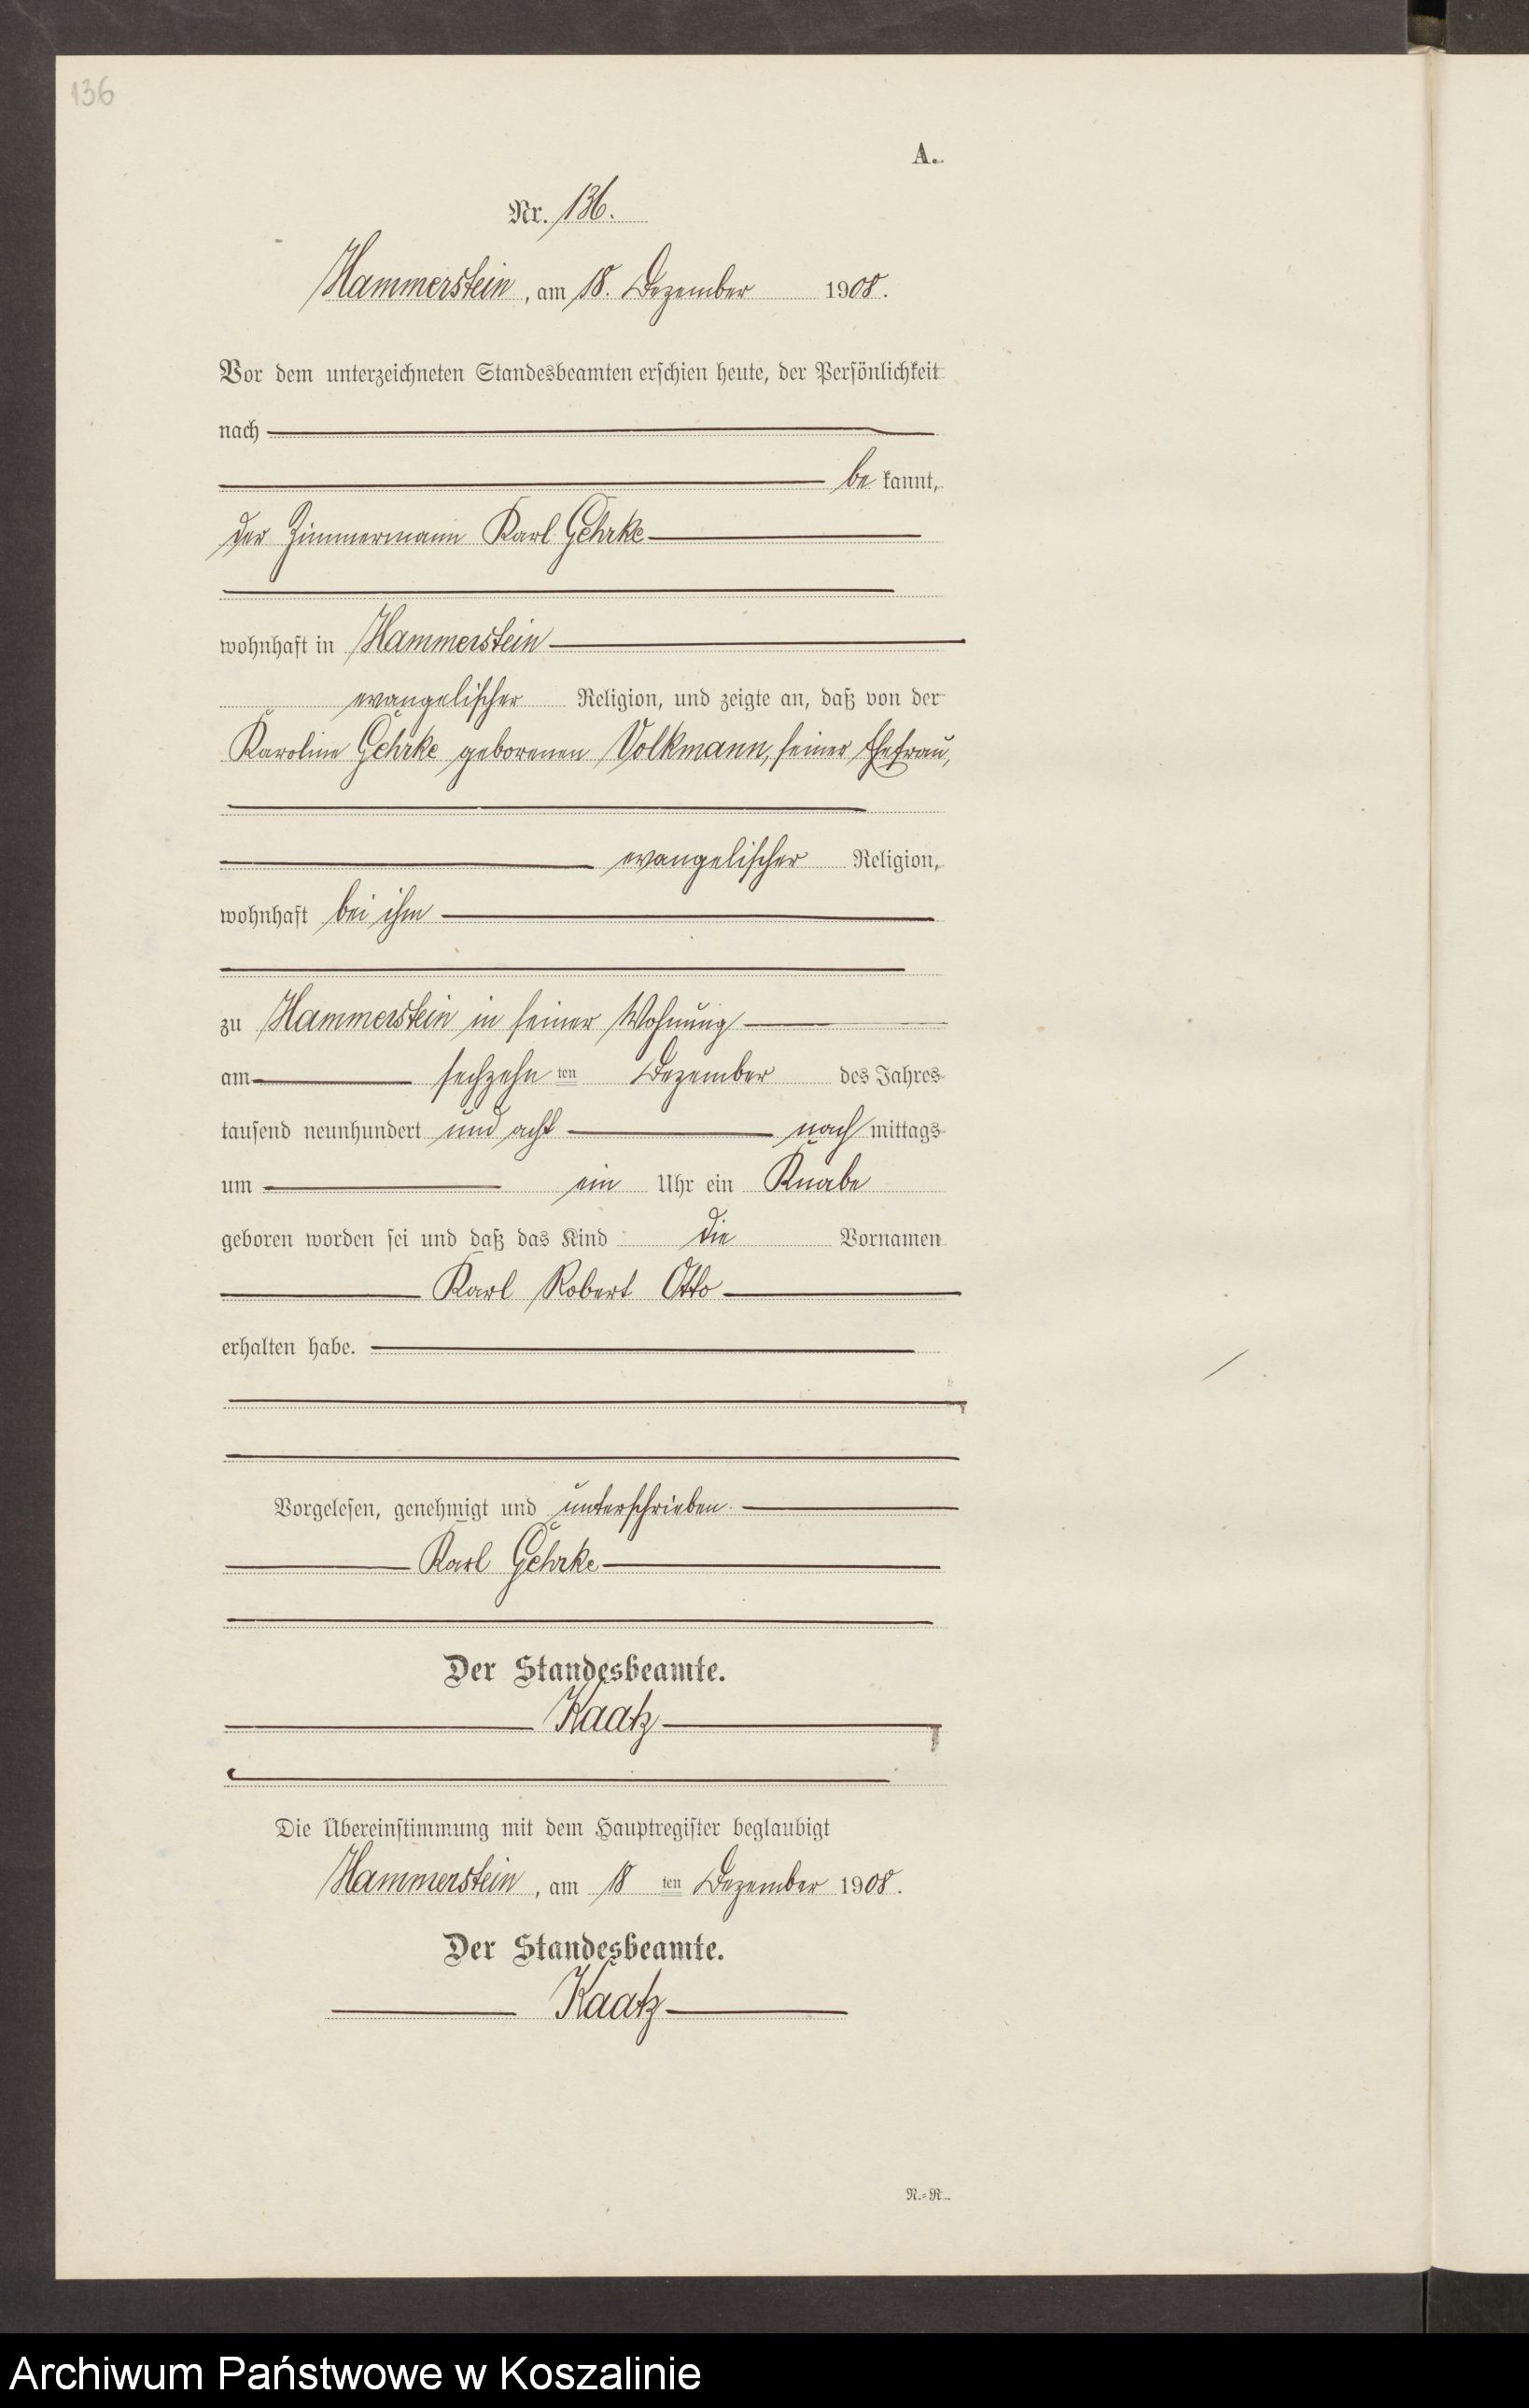 136
A.
Nr. 136.
Hammerstein, am 18. Dezember 1908.
Vor dem unterzeichneten Standesbeamten erschien heute, der Persönlichkeit
nach
be kannt,
der Zimmermann Karl Gehrke
wohnhaft in Hammerstein
evangelischer Religion, und zeigte an, daß von der
Karoline Gehrke geborenen Volkmann, seiner Ehefrau,
evangelischer Religion,
wohnhaft bei ihm
zu Hammerstein in seiner Wohnung
am sechzehn ten Dezember des Jahres
tausend neunhundert und acht nach mittags
um ein Uhr ein Knabe
geboren worden sei und daß das Kind die Vornamen
Karl Robert Otto
erhalten habe.
Vorgelesen, genehmigt und unterschrieben.
Karl Gehrke
Der Standesbeamte.
Kaatz
Die Übereinstimmung mit dem Hauptregister beglaubigt
Hammerstein, am 18 ten Dezember 1908.
Der Standesbeamte.
Kaatz
N.-R.
Archiwum Państwowe w Koszalinie